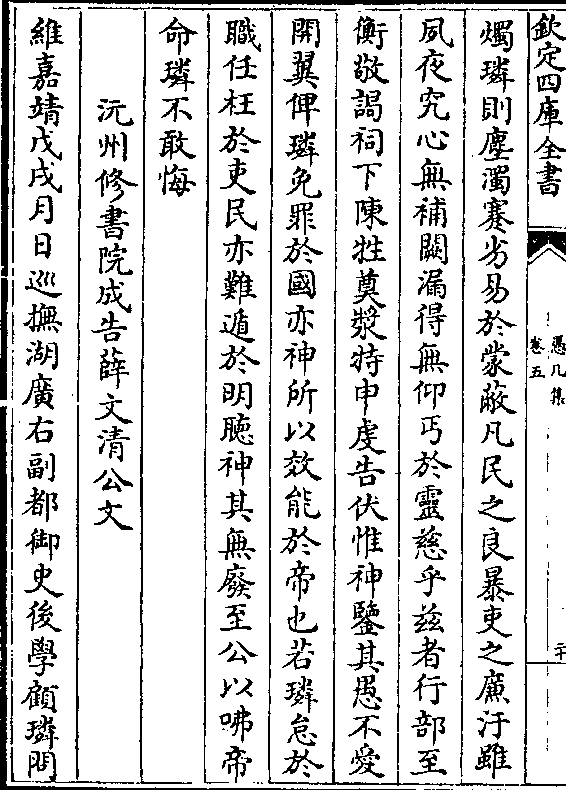 欽定四庫全書
憑几集
卷五
二十
燭璘則塵濁蹇劣易於蒙蔽凡民之良暴吏之廉汙雖
夙夜究心無補闕漏得無仰丐於靈慈乎兹者行部至
衡敬謁祠下陳牲奠漿特申虔告伏惟神鑒其愚不愛
開翼俾璘免罪於國亦神所以效能於帝也若璘怠於
職任枉於吏民亦難遁於明聽神其無廢至公以咈帝
命璘不敢悔
沅州修書院成告薛文清公文
維嘉靖戊戌月日巡撫湖廣右副都御史後學顧璘問